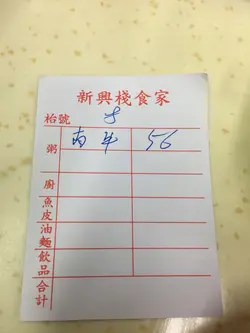 新興棧食家
枱號
粥 肉羊 56
廚
魚皮
油麵
飲品
合計